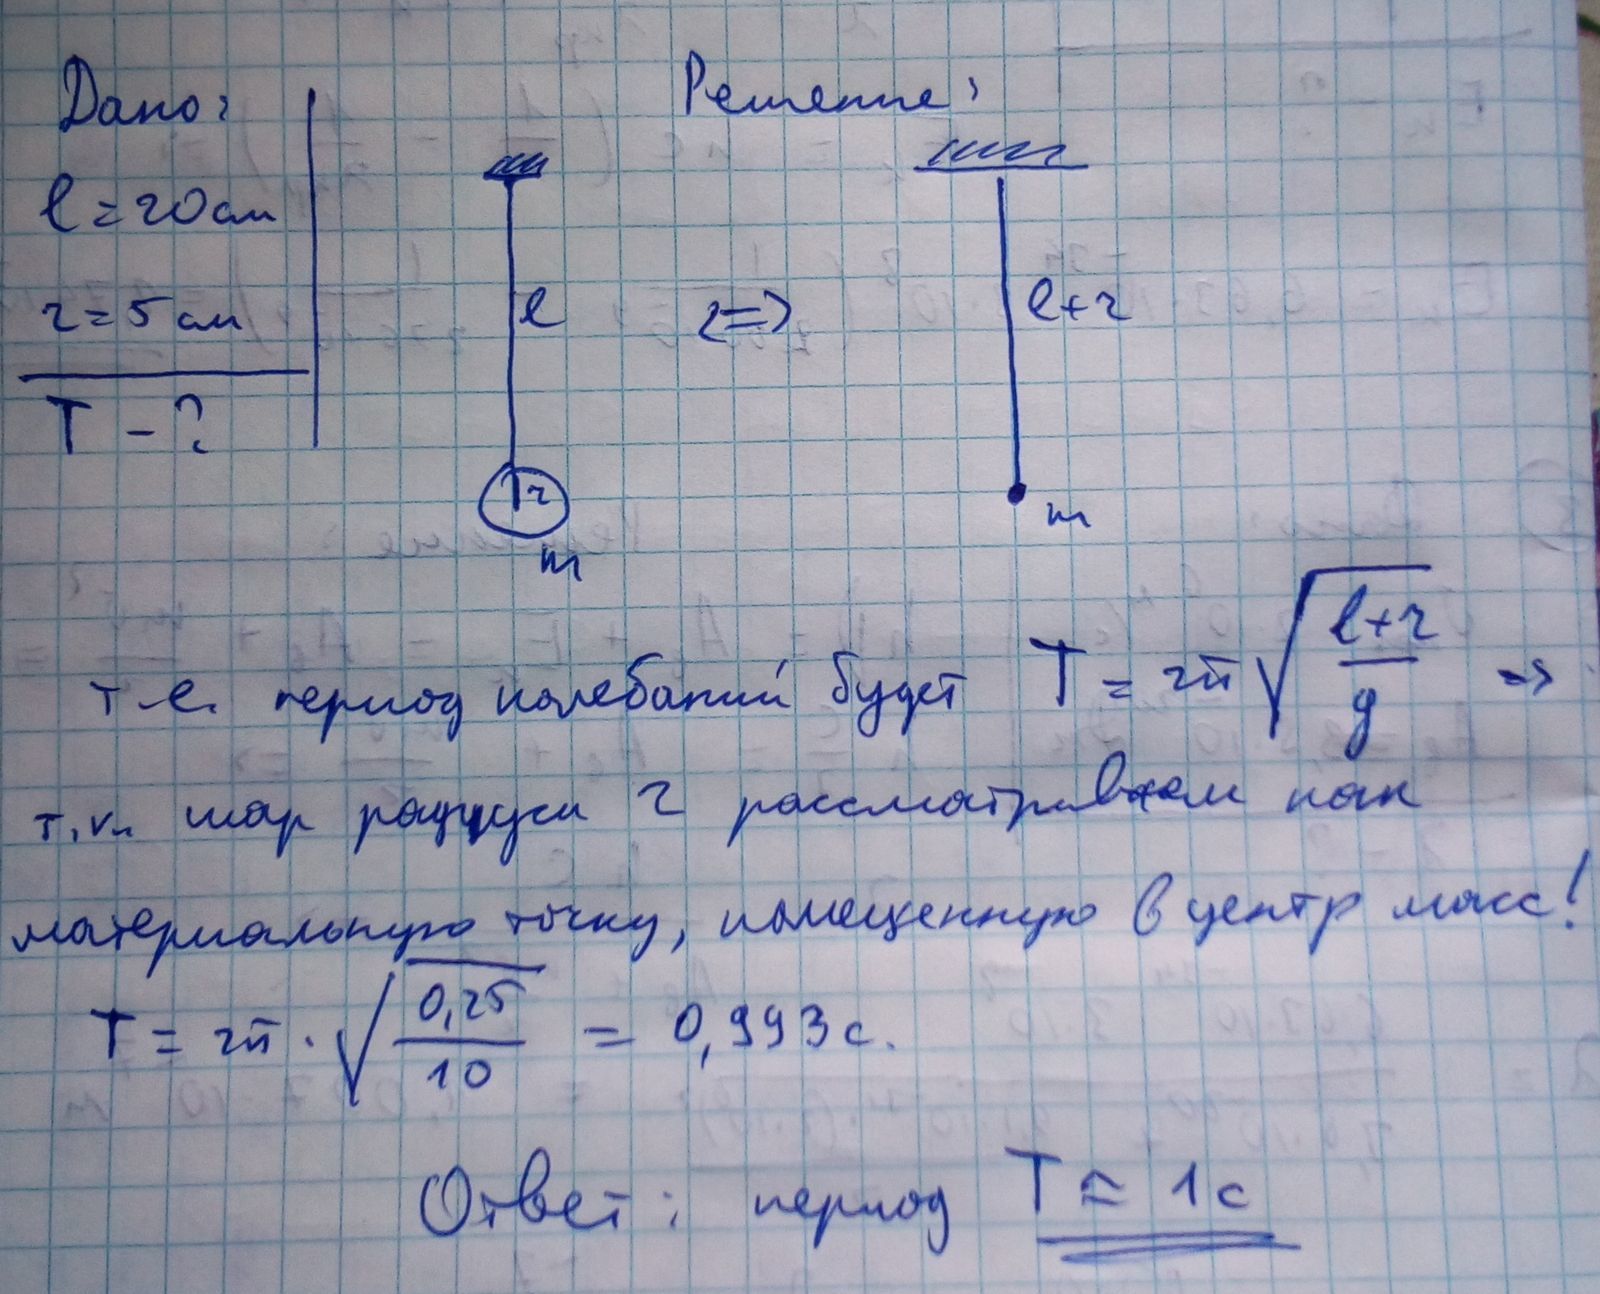 Дано:
Решение:
l = 20 см
r = 5 см
T - ?
l
<=>
l+r
r
m
m
т.е. период колебаний будет T = 2π √((l+r)/g) =>
т.к. шар радиуса r рассматриваем как
материальную точку, помещенную в центр масс!
T = 2π · √(0,25/10) = 0,993 с.
Ответ: период T ≈ 1 с